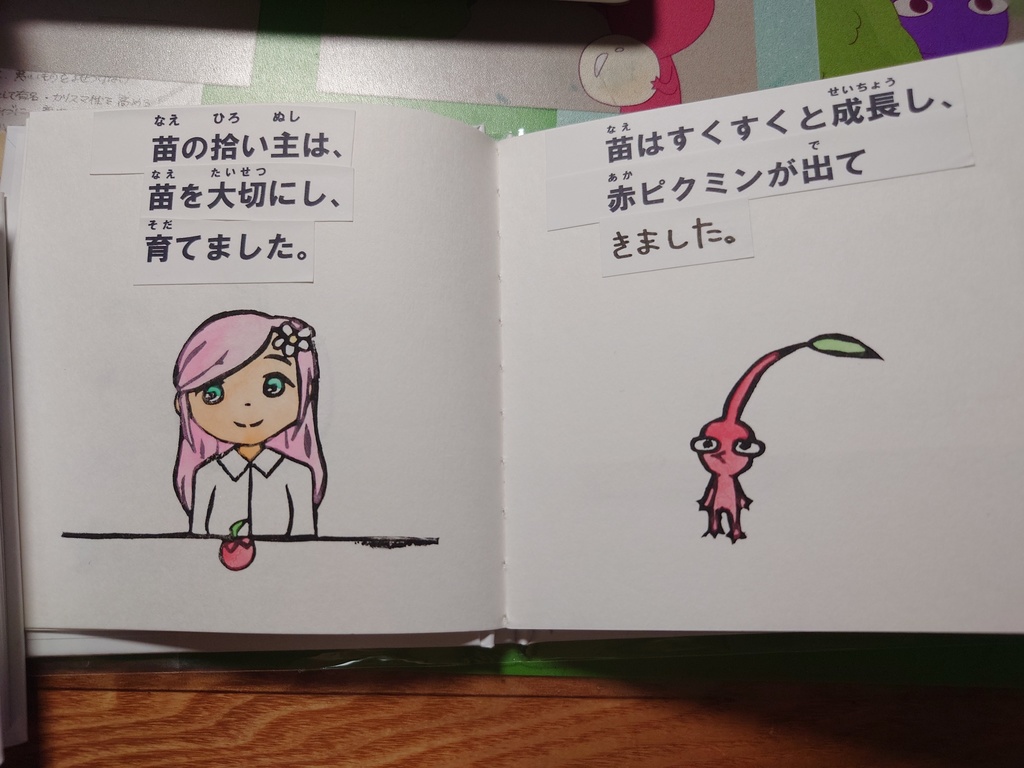 なえ ひろ ぬし
苗の拾い主は、
なえ たいせつ
苗を大切にし、
そだ
育てました。
なえ せいちょう
苗はすくすくと成長し、
あか で
赤ピクミンが出て
きました。